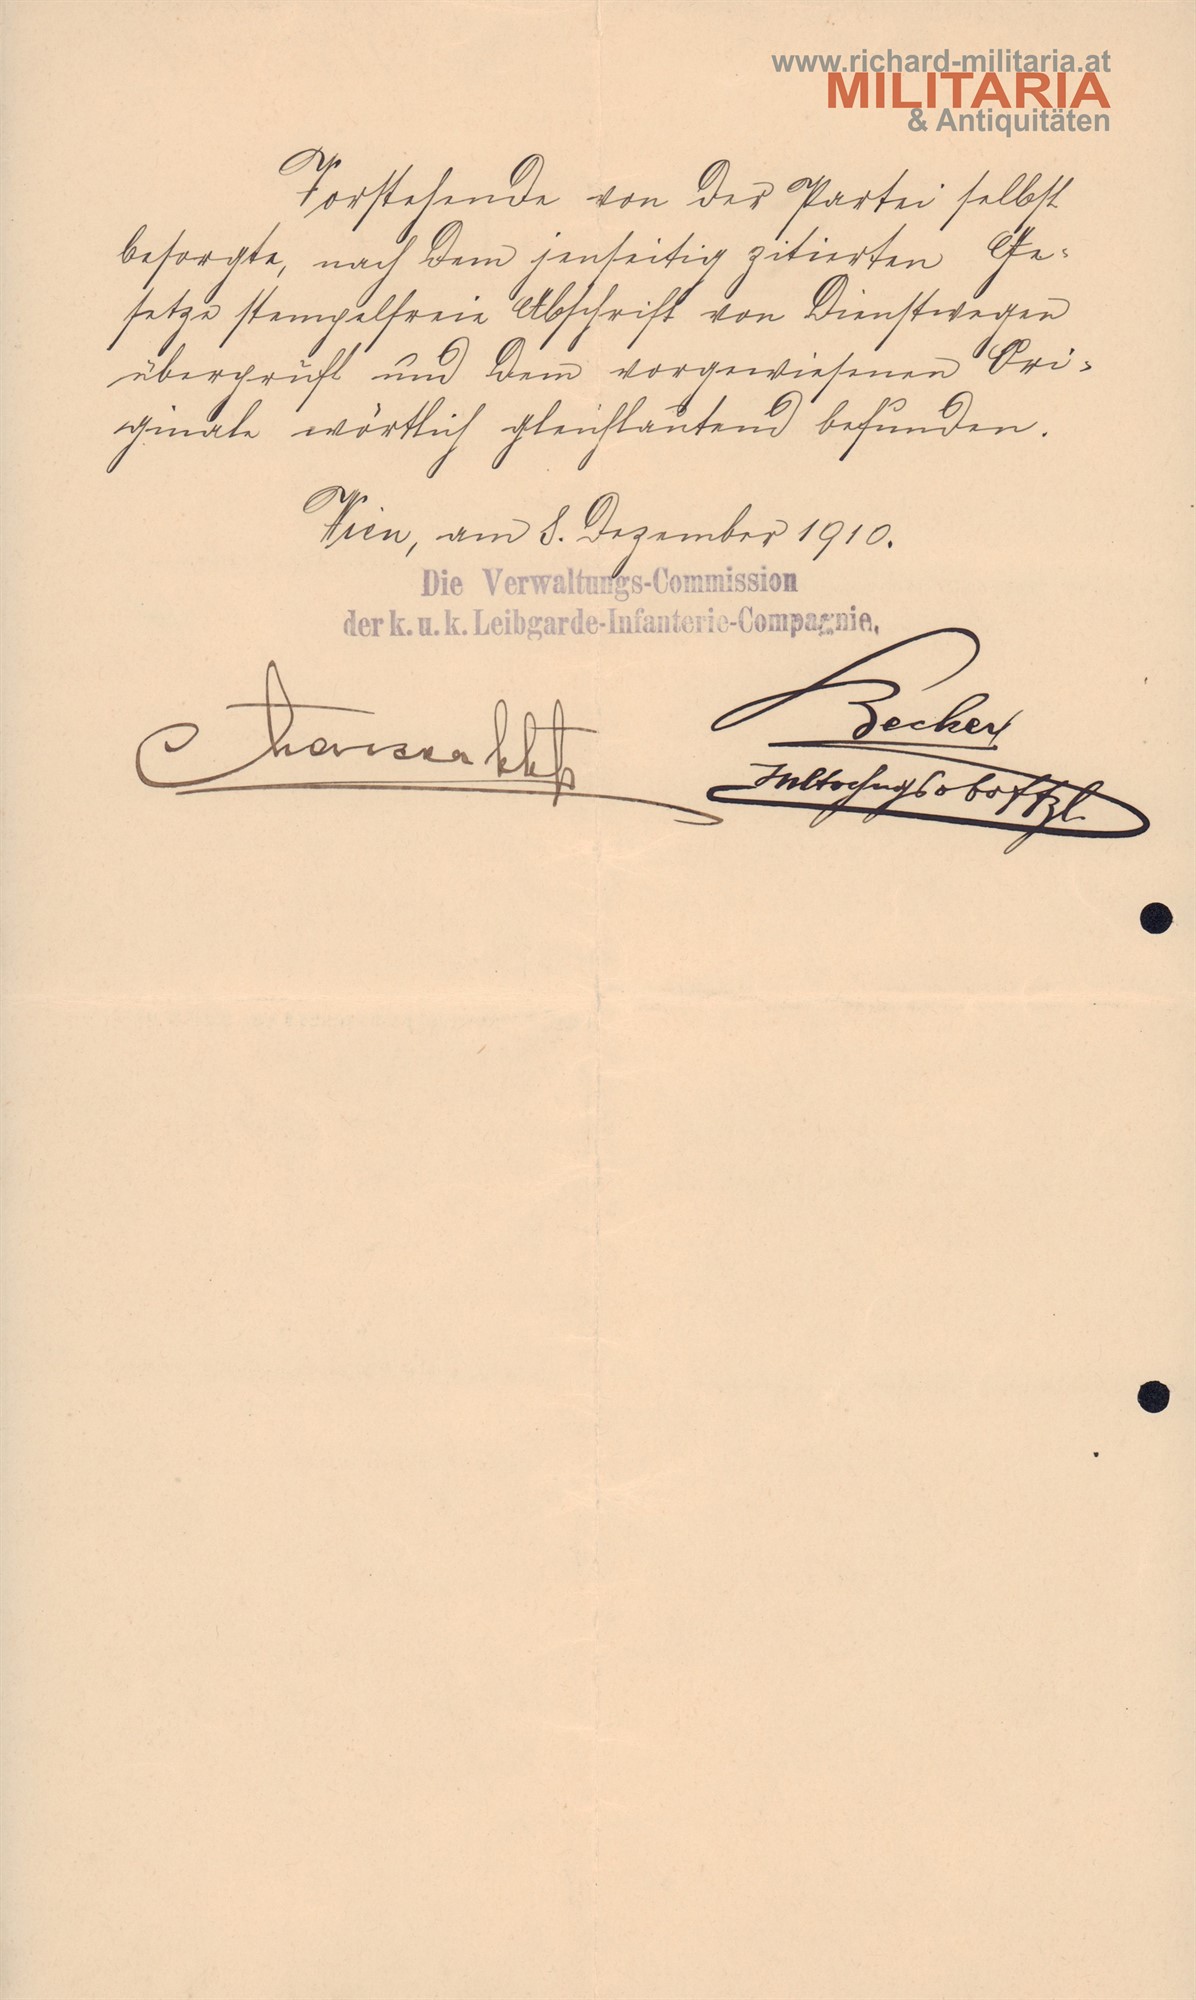 www.richard-militaria.at
MILITARIA
& Antiquitäten
Vorstehende von der Partei selbst
besorgte, nach dem jenseitig zitierten Ge-
setze stempelfreie Abschrift von Dienstwegen
überprüft und dem vorgewiesenen Ori-
ginale wörtlich gleichlautend befunden.
Wien, am 8. Dezember 1910.
Die Verwaltungs-Commission
der k. u. k. Leibgarde-Infanterie-Compagnie.
Becker